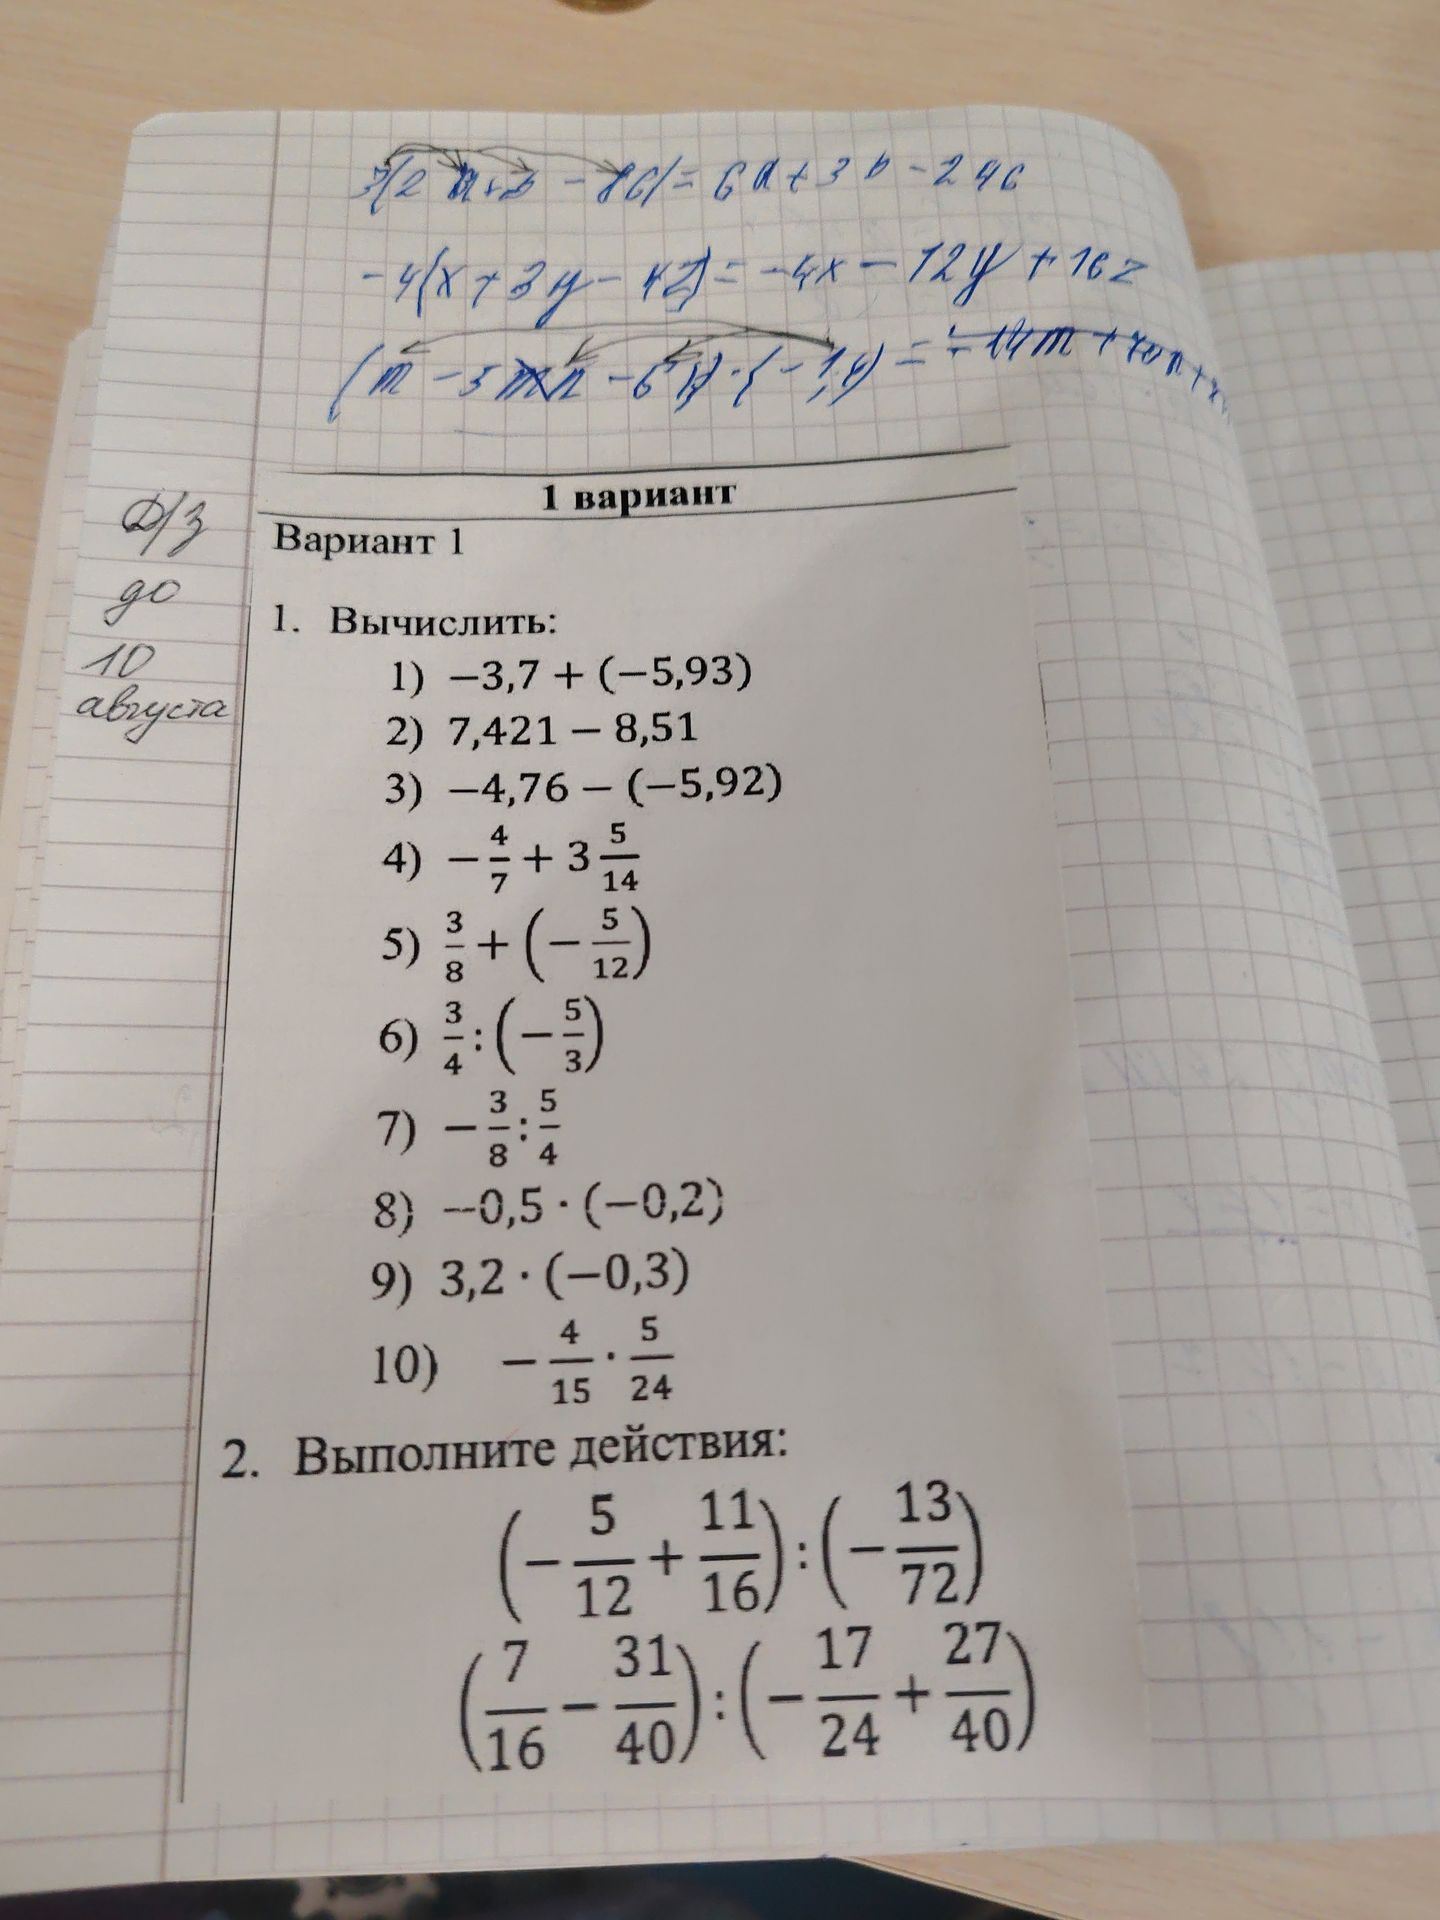 3(2a+b - 8c) = 6a+3b-24c
-4(x+3y-4z) = -4x-12y+16z
(m - 5n - 6
1 вариант
Вариант 1
Д/з
до
10
августа
1. Вычислить:
1) −3,7 + (−5,93)
2) 7,421 − 8,51
3) −4,76 − (−5,92)
4) −4/7 + 3 5/14
5) 3/8 + (−5/12)
6) 3/4 : (−5/3)
7) −3/8 : 5/4
8) −0,5 · (−0,2)
9) 3,2 · (−0,3)
10) −4/15 · 5/24
2. Выполните действия:
(−5/12 + 11/16) : (−13/72)
(7/16 − 31/40) : (−17/24 + 27/40)